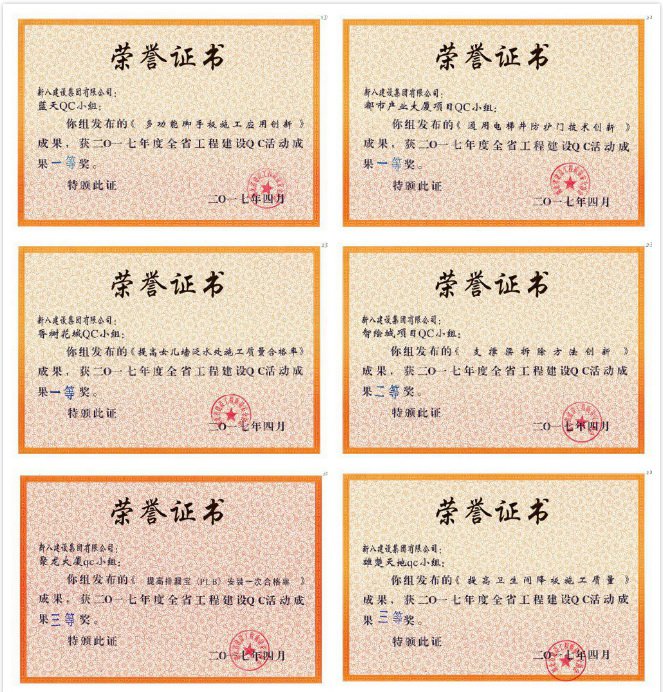 荣誉证书
新八建设集团有限公司：
蓝天QC小组：
你组发布的《多功能脚手板施工应用创新》
成果，获二O一七年度全省工程建设QC活动成
果一等奖。
特颁此证
二O一七年四月
荣誉证书
新八建设集团有限公司：
都市产业大厦项目QC小组：
你组发布的《通用电梯井防护门技术创新》
成果，获二O一七年度全省工程建设QC活动成
果一等奖。
特颁此证
二O一七年四月
荣誉证书
新八建设集团有限公司：
香树花城QC小组：
你组发布的《提高女儿墙泛水处施工质量合格率》
成果，获二O一七年度全省工程建设QC活动成
果一等奖。
特颁此证
二O一七年四月
荣誉证书
新八建设集团有限公司：
智绘城项目QC小组：
你组发布的《支撑梁拆除方法创新》
成果，获二O一七年度全省工程建设QC活动成
果二等奖。
特颁此证
二O一七年四月
荣誉证书
新八建设集团有限公司：
聚龙大厦qc小组：
你组发布的《提高排漏宝（PLB）安装一次合格率》
成果，获二O一七年度全省工程建设QC活动成
果三等奖。
特颁此证
二O一七年四月
荣誉证书
新八建设集团有限公司：
雄楚天地qc小组：
你组发布的《提高卫生间降板施工质量》
成果，获二O一七年度全省工程建设QC活动成
果三等奖。
特颁此证
二O一七年四月